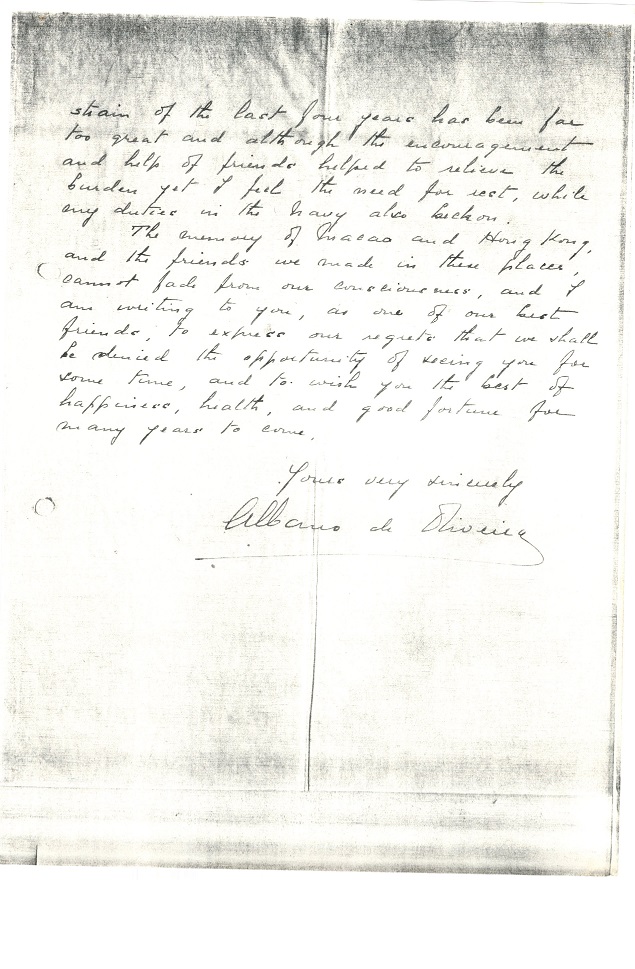 strain of the last four years has been far
too great and although the encouragement
and help of friends helped to relieve the
burden yet I feel the need for rest, while
my duties in the Navy also beckon.
The memory of Macao and Hong Kong,
and the friends we made in these places,
cannot fade from our consciousness, and I
am writing to you, as one of our best
friends, to express our regrets that we shall
be denied the opportunity of seeing you for
some time, and to wish you the best of
happiness, health, and good fortune for
many years to come.
Yours very sincerely
Albano de Oliveira